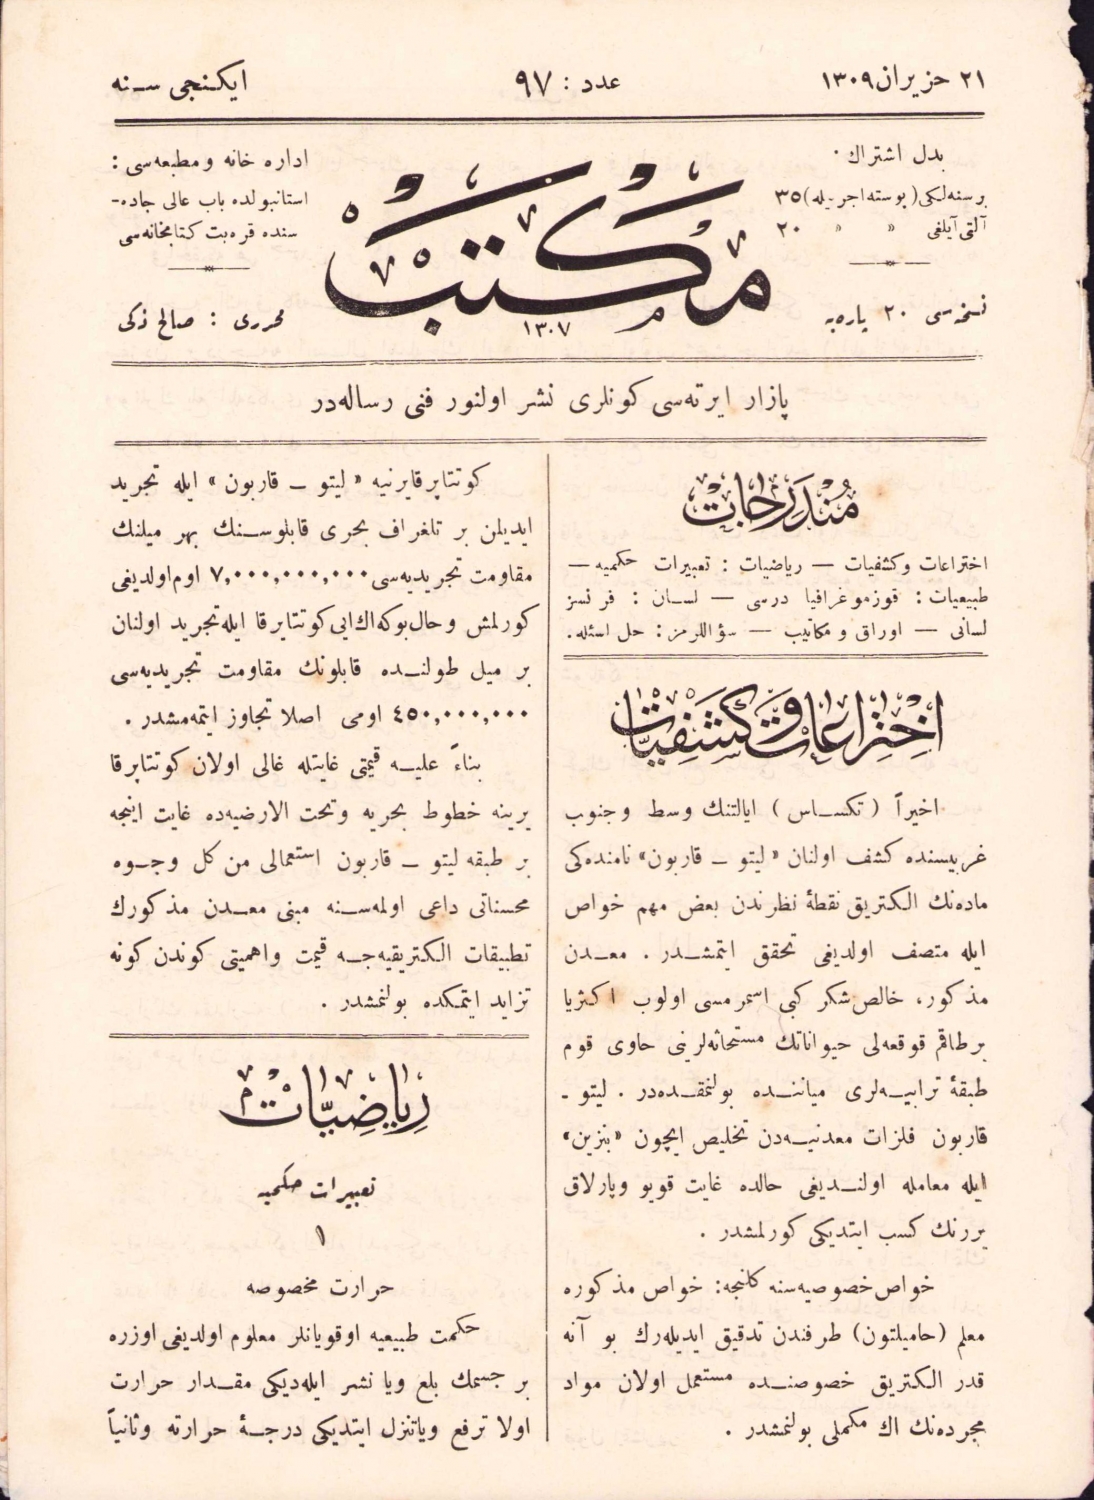 ٢١ حزیران ١٣٠٩
عدد : ٩٧
ایکنجی سنه
بدل اشتراك .
برسنه‌لکی (پوسته اجرتیله) ٣٥
آلتی آیلغی « « ٢٠
نسخه‌سی ٢٠ پاره‌یه
مكتب
١٣٠٧
اداره خانه و مطبعه‌سی :
استانبولده باب عالی جاده-
سنده قره‌بت کتابخانه‌سی
محرری : صالح ذکی
پازار ایرته‌سی کونلری نشر اولنور فنی رساله‌در
مُنْدَرِجات
اختراعات وکشفیات — ریاضیات : تعبیرات حکمیه —
طبیعیات : قوزموغرافیا درسی — لسان : فرنسز
لسانی — اوراق و مکاتیب — سؤاللرمز : حل اسئله.
اختراعات و کشفیات
اخیراً ( تکساس ) ایالتنك وسط وجنوب
غربیسنده کشف اولنان « لیتو ـ قاربون» نامنده‌کی
ماده‌نك الکتریق نقطهٔ نظرندن بعض مهم خواص
ایله متصف اولدیغی تحقق ایتمشدر . معدن
مذکور، خالص شکر کبی اسمرمسی اولوب اکثریا
برطاقم قوقعه‌لی حیواناتك مستحاثه‌لرینی حاوی قوم
طبقهٔ ترابیه‌لری میاننده بولنمقده‌در . لیتو ـ
قاربون فلزات معدنیه‌دن تخلیص ایچون «بنزین»
ایله معامله اولندیغی حالده غایت قویو وپارلاق
بررنك کسب ایتدیکی کورلمشدر .
خواص خصوصیه‌سنه کلنجه: خواص مذکوره
معلم (حامیلتون) طرفندن تدقیق ایدیله‌رك بو آنه
قدر الکتریق خصوصنده مستعمل اولان مواد
مجرده‌نك اك مکملی بولنمشدر .
کوتتاپرقایرنیه « لیتو ـ قاربون » ایله تجرید
ایدیلن بر تلغراف بحری قابلوسنك بهر میلنك
مقاومت تجریدیه‌سی ٧,٠٠٠,٠٠٠,٠٠٠ اوم اولدیغی
کورلمش وحال بوکه اك ایی کوتتاپرقا ایله تجرید اولنان
بر میل طولنده قابلونك مقاومت تجریدیه‌سی
٤٥٠,٠٠٠,٠٠٠ اومی اصلا تجاوز ایتمه‌مشدر .
بناءً علیه قیمتی غایتله غالی اولان کوتتاپرقا
یرینه خطوط بحریه وتحت الارضیه‌ده غایت اینجه
بر طبقه لیتو ـ قاربون استعمالی من کل وجوه
محسناتی داعی اولمه‌سنه مبنی معدن مذکورك
تطبیقات الکتریقیه‌جه قیمت واهمیتی کوندن کونه
تزاید ایتمکده بولنمشدر .
رِیاضِیّات
تعبیرات حکمیه
١
حرارت مخصوصه
حکمت طبیعیه اوقویانلر معلوم اولدیغی اوزره
بر جسمك بلع ویا نشر ایله‌دیکی مقدار حرارت
اولا ترفع ویاتنزل ایتدیکی درجهٔ حرارته وثانیاً